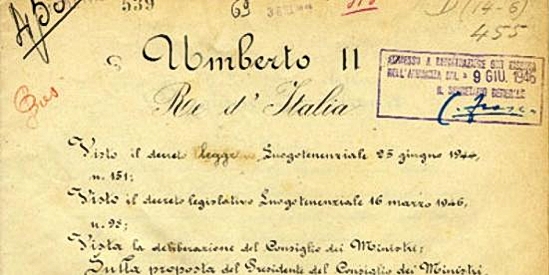 539
69
D (14-6)
455
Umberto II
Re d'Italia
9 GIU. 1946
IL SEGRETARIO GENERALE
Visto il decreto legge Luogotenenziale 25 giugno 1944,
n. 151;
Visto il decreto legislativo Luogotenenziale 16 marzo 1946,
n. 98;
Vista la deliberazione del Consiglio dei Ministri;
Sulla proposta del Presidente del Consiglio dei Ministri